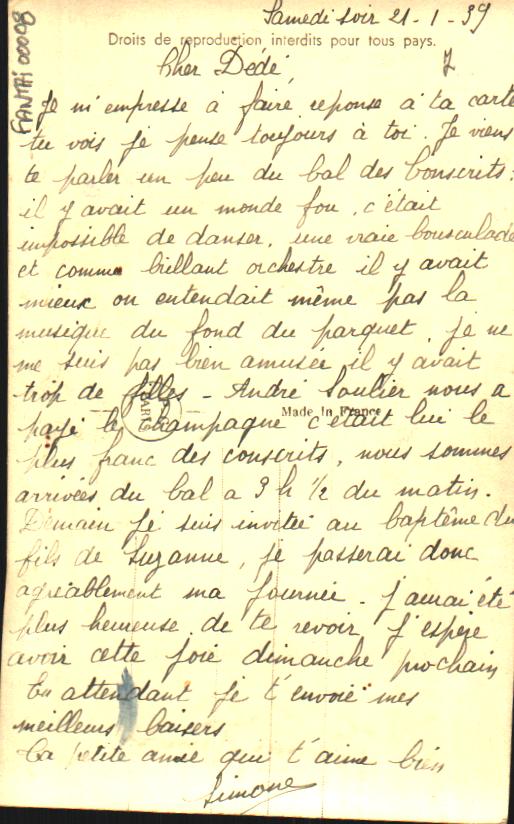 Samedi soir 21-1-39
Droits de reproduction interdits pour tous pays.
FANTAi 00008
Cher Dédé, 7
Je m'empresse à faire reponse à ta carte
tu vois je pense toujours à toi. Je viens
te parler un peu du bal des Conscrits :
il y avait un monde fou, c'était
impossible de danser, une vraie bousculade
et comme brillant orchestre il y avait
mieux on entendait même pas la
musique du fond du parquet, je ne
me suis pas bien amusée il y avait
trop de filles - André Soulier nous a
payé le champagne c'était lui le
Made in France
plus franc des conscrits, nous sommes
arrivées du bal a 3 h 1/2 du matin.
Demain je suis invitée au baptême du
fils de Suzanne, je passerai donc
agréablement ma journée - J'aurai été
plus heureuse de te revoir, j'espère
avoir cette joie dimanche prochain
En attendant je t'envoie mes
meilleurs baisers
Ta petite amie qui t'aime bien
Simone